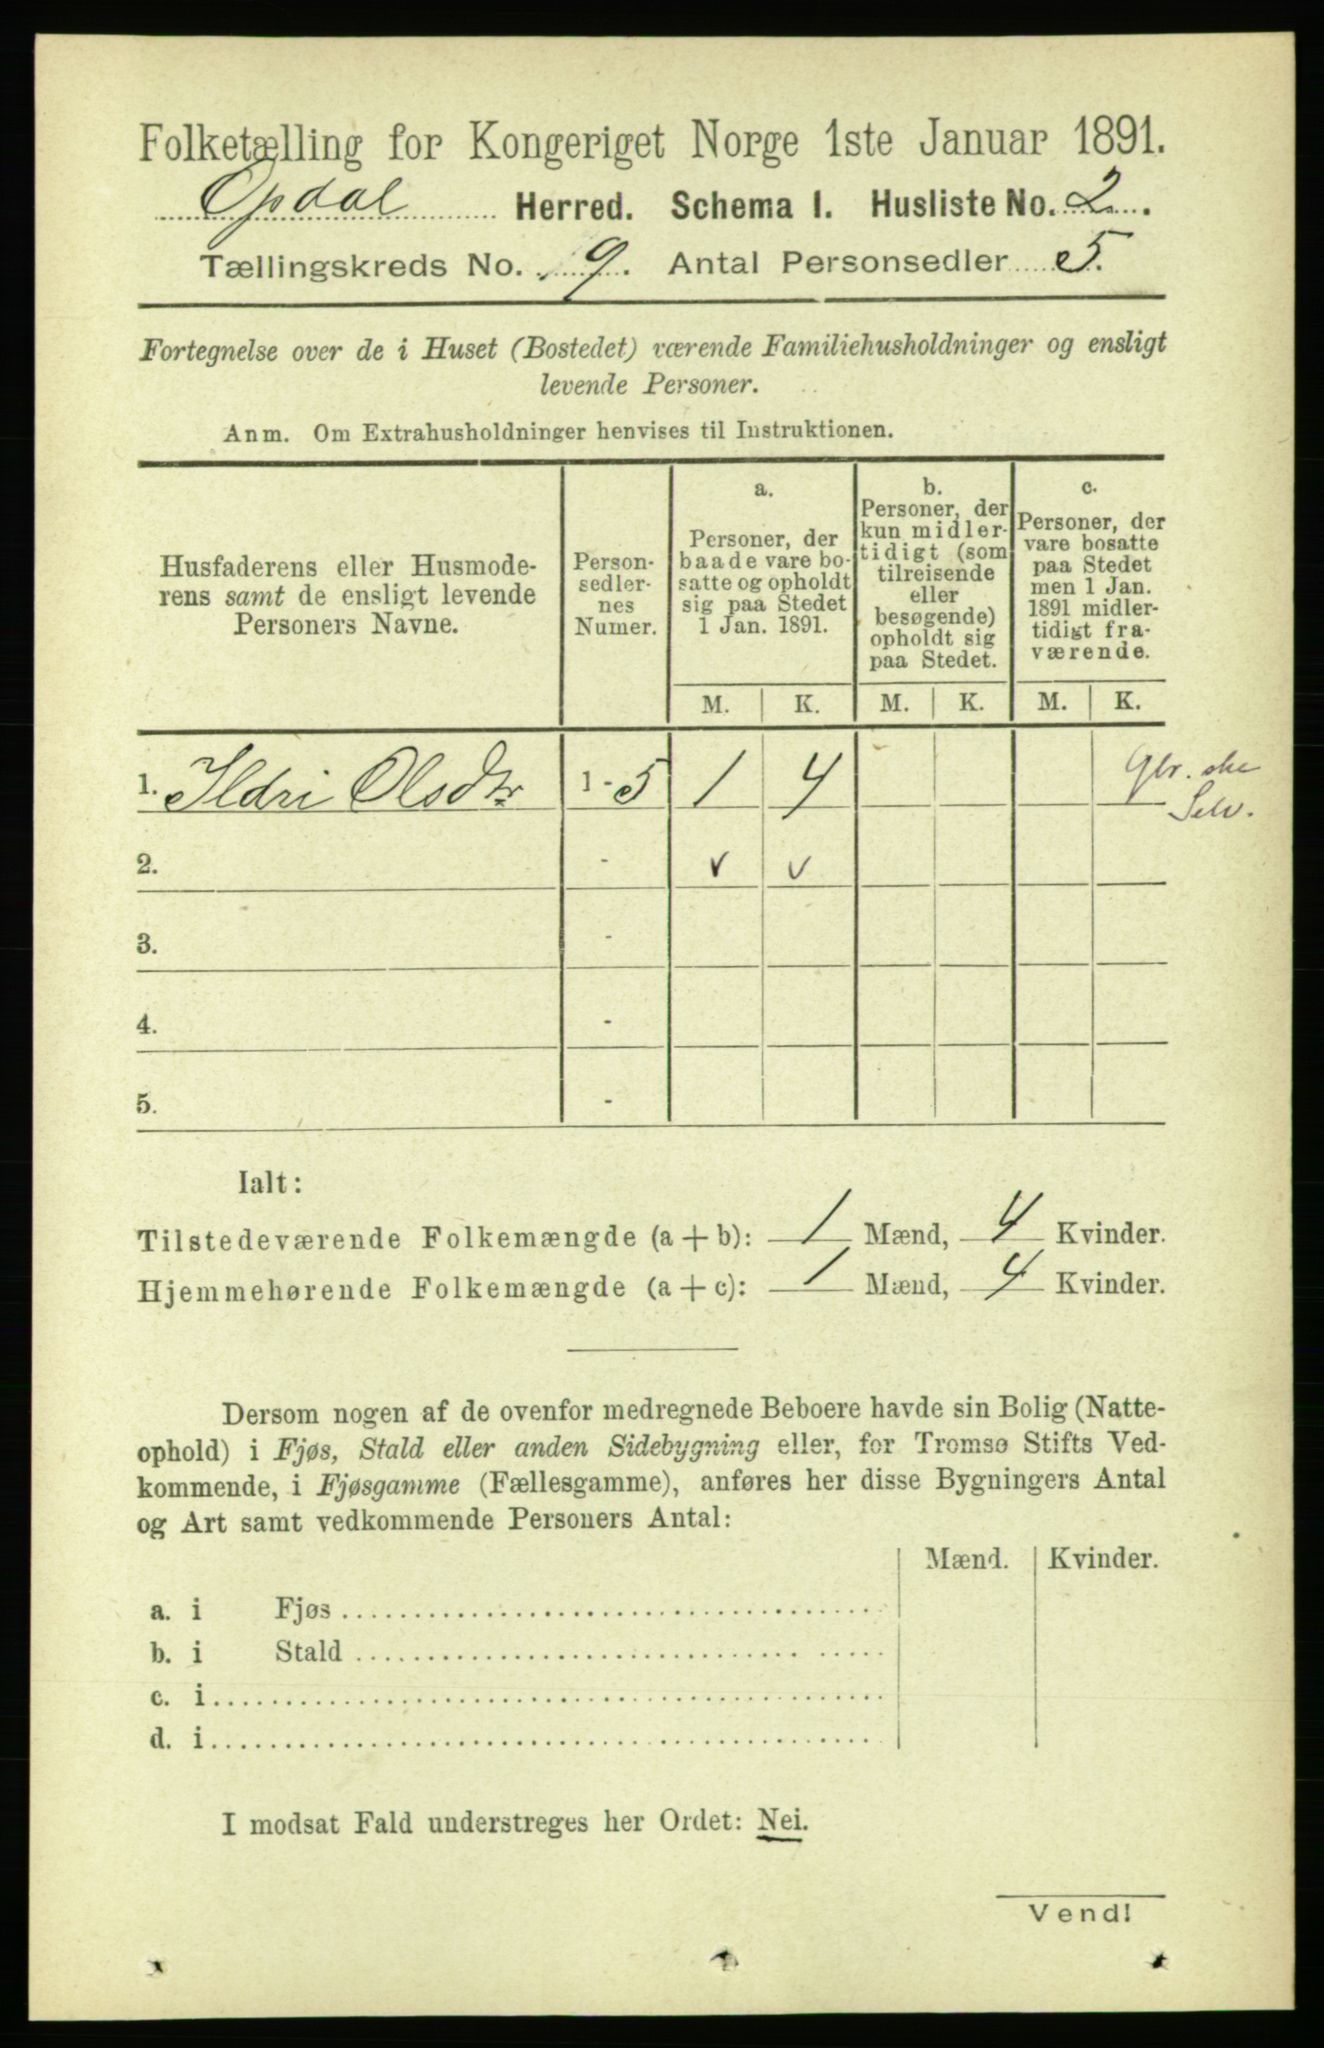 Folketælling for Kongeriget Norge 1ste Januar 1891.
Opdal Herred. Schema I. Husliste No. 2.
Tællingskreds No. 9. Antal Personsedler 5.
Fortegnelse over de i Huset (Bostedet) værende Familiehusholdninger og ensligt
levende Personer.
Anm. Om Extrahusholdninger henvises til Instruktionen.
Husfaderens eller Husmode-
rens samt de ensligt levende
Personers Navne.
Person-
sedler-
nes
Numer.
a.
Personer, der
baade vare bo-
satte og opholdt
sig paa Stedet
1 Jan. 1891.
b.
Personer, der
kun midler-
tidigt (som
tilreisende
eller
besøgende)
opholdt sig
paa Stedet.
c.
Personer, der
vare bosatte
paa Stedet
men 1 Jan.
1891 midler-
tidigt fra-
værende.
M. K. M. K. M. K.
1. Ildri Olsdtr 1 - 5 1 4
Selv.
2. - v v
3. -
4. -
5. -
Ialt:
Tilstedeværende Folkemængde (a + b): 1 Mænd, 4 Kvinder.
Hjemmehørende Folkemængde (a + c): 1 Mænd, 4 Kvinder.
Dersom nogen af de ovenfor medregnede Beboere havde sin Bolig (Natte-
ophold) i Fjøs, Stald eller anden Sidebygning eller, for Tromsø Stifts Ved-
kommende, i Fjøsgamme (Fællesgamme), anføres her disse Bygningers Antal
og Art samt vedkommende Personers Antal:
Mænd. Kvinder.
a. i Fjøs
b. i Stald
c. i
d. i
I modsat Fald understreges her Ordet: Nei.
Vend!